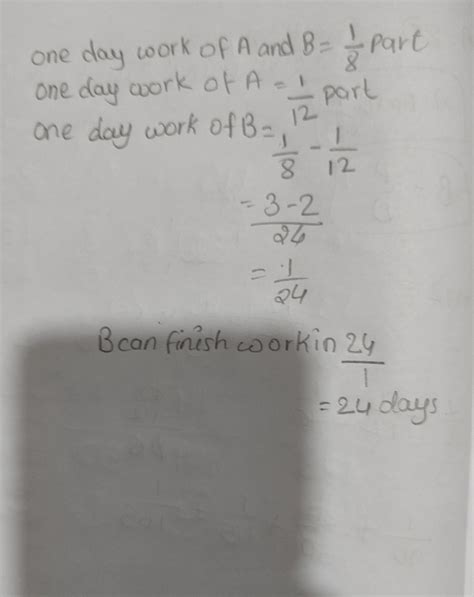 one day work of A and B = 1/8 part
one day work of A = 1/12 part
one day work of B = 1/8 - 1/12
= 3-2/24
= 1/24
B can finish work in 24/1
= 24 days